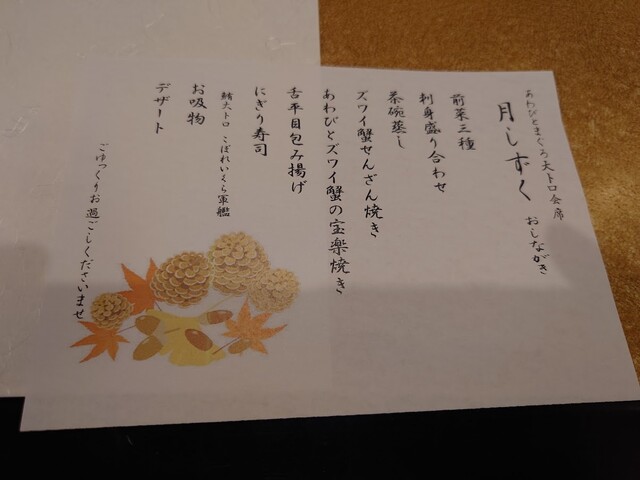 あわびとまぐろ大トロ会席
月しずく おしながき
前菜三種
刺身盛り合わせ
茶碗蒸し
ズワイ蟹せんざん焼き
あわびとズワイ蟹の宝楽焼き
舌平目包み揚げ
にぎり寿司
鮪大トロ こぼれいくら軍艦
お吸物
デザート
ごゆっくりお過ごしくださいませ